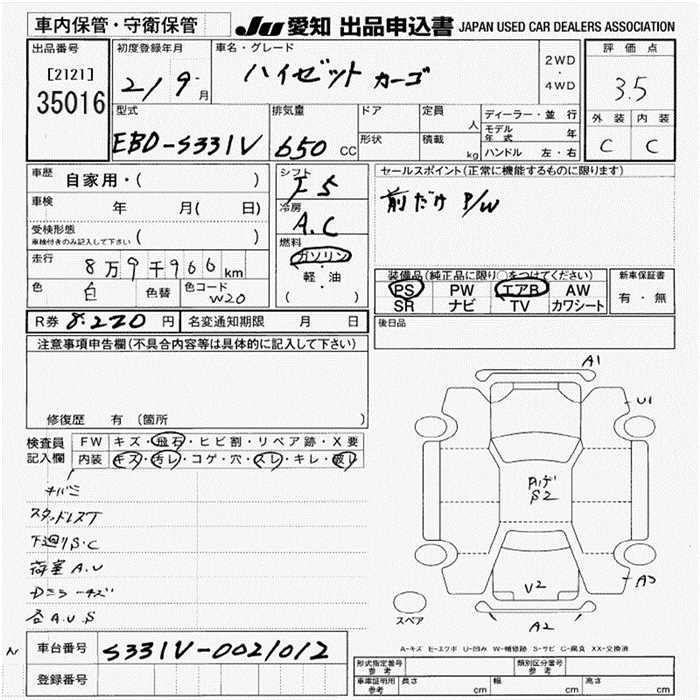 車内保管・守衛保管
JU 愛知 出品申込書 JAPAN USED CAR DEALERS ASSOCIATION
出品番号
[2121]
35016
初度登録年月
21/9 月
車名・グレード
ハイゼット カーゴ
2WD
・
4WD
評価点
3.5
外装 内装
C C
型式
EBD-S331V
排気量
650 CC
ドア
形状
定員
人
積載
kg
ディーラー・並行
モデル年式 年
ハンドル 左・右
車歴
自家用・( )
車検 年 月( 日)
受検形態
車検付きのみ記入して下さい ( )
走行 8万9千966km
色 白 色替 色コード W20
シフト
I5
冷房
A.C
燃料
ガソリン
・
軽・油
( )
セールスポイント(正常に機能するものに限ります)
前だけ P/W
装備品(純正品に限り○をつけてください)
PS PW エアB AW
SR ナビ TV カワシート
新車保証書
有・無
後日品
R券 8.220 円 名変通知期限 月 日
注意事項申告欄(不具合内容等は具体的に記入して下さい)
修復歴 有 (箇所 )
検査員記入欄
FW キズ・飛石・ヒビ割・リペア跡・X要
内装 キズ・汚レ・コゲ・穴・スレ・キレ・破レ
スタッドレスT
下廻りS・C
荷室A.U
各A.U.S
A1
U1
S2
V2
A3
A2
スペア
A-キズ E-エクボ U-凹み W-補修跡 S-サビ C-腐食 XX-交換済
車台番号 S331V-0021012
登録番号
形式指定番号 参考
類別区分番号 参考
車庫証明用 参考 長さ cm 幅 cm 高さ cm